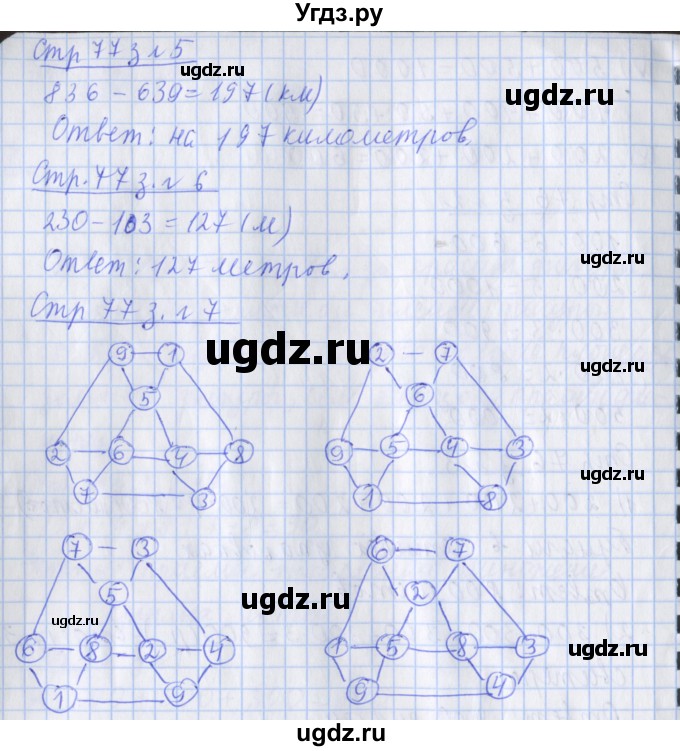 Угдз.ру
Стр 77 з. г 5
ugdz.ru
836 - 639 = 197 (км)
ugdz.ru
Ответ: на 197 километров.
Стр. 77 з. г 6
ugdz.ru
230 - 103 = 127 (м)
Ответ: 127 метров.
ugdz.ru
Стр 77 з. г 7
ugdz.ru
9 1 2 7
ugdz.ru
5 6
2 6 4 8 9 5 4 3
ugdz.ru
7 3 1 8
7 3 6 7
ugdz.ru
5 2
ugdz.ru
ugdz.ru
6 8 2 4 1 5 8 3
1 9 9 4
ugdz.ru
ugdz.ru